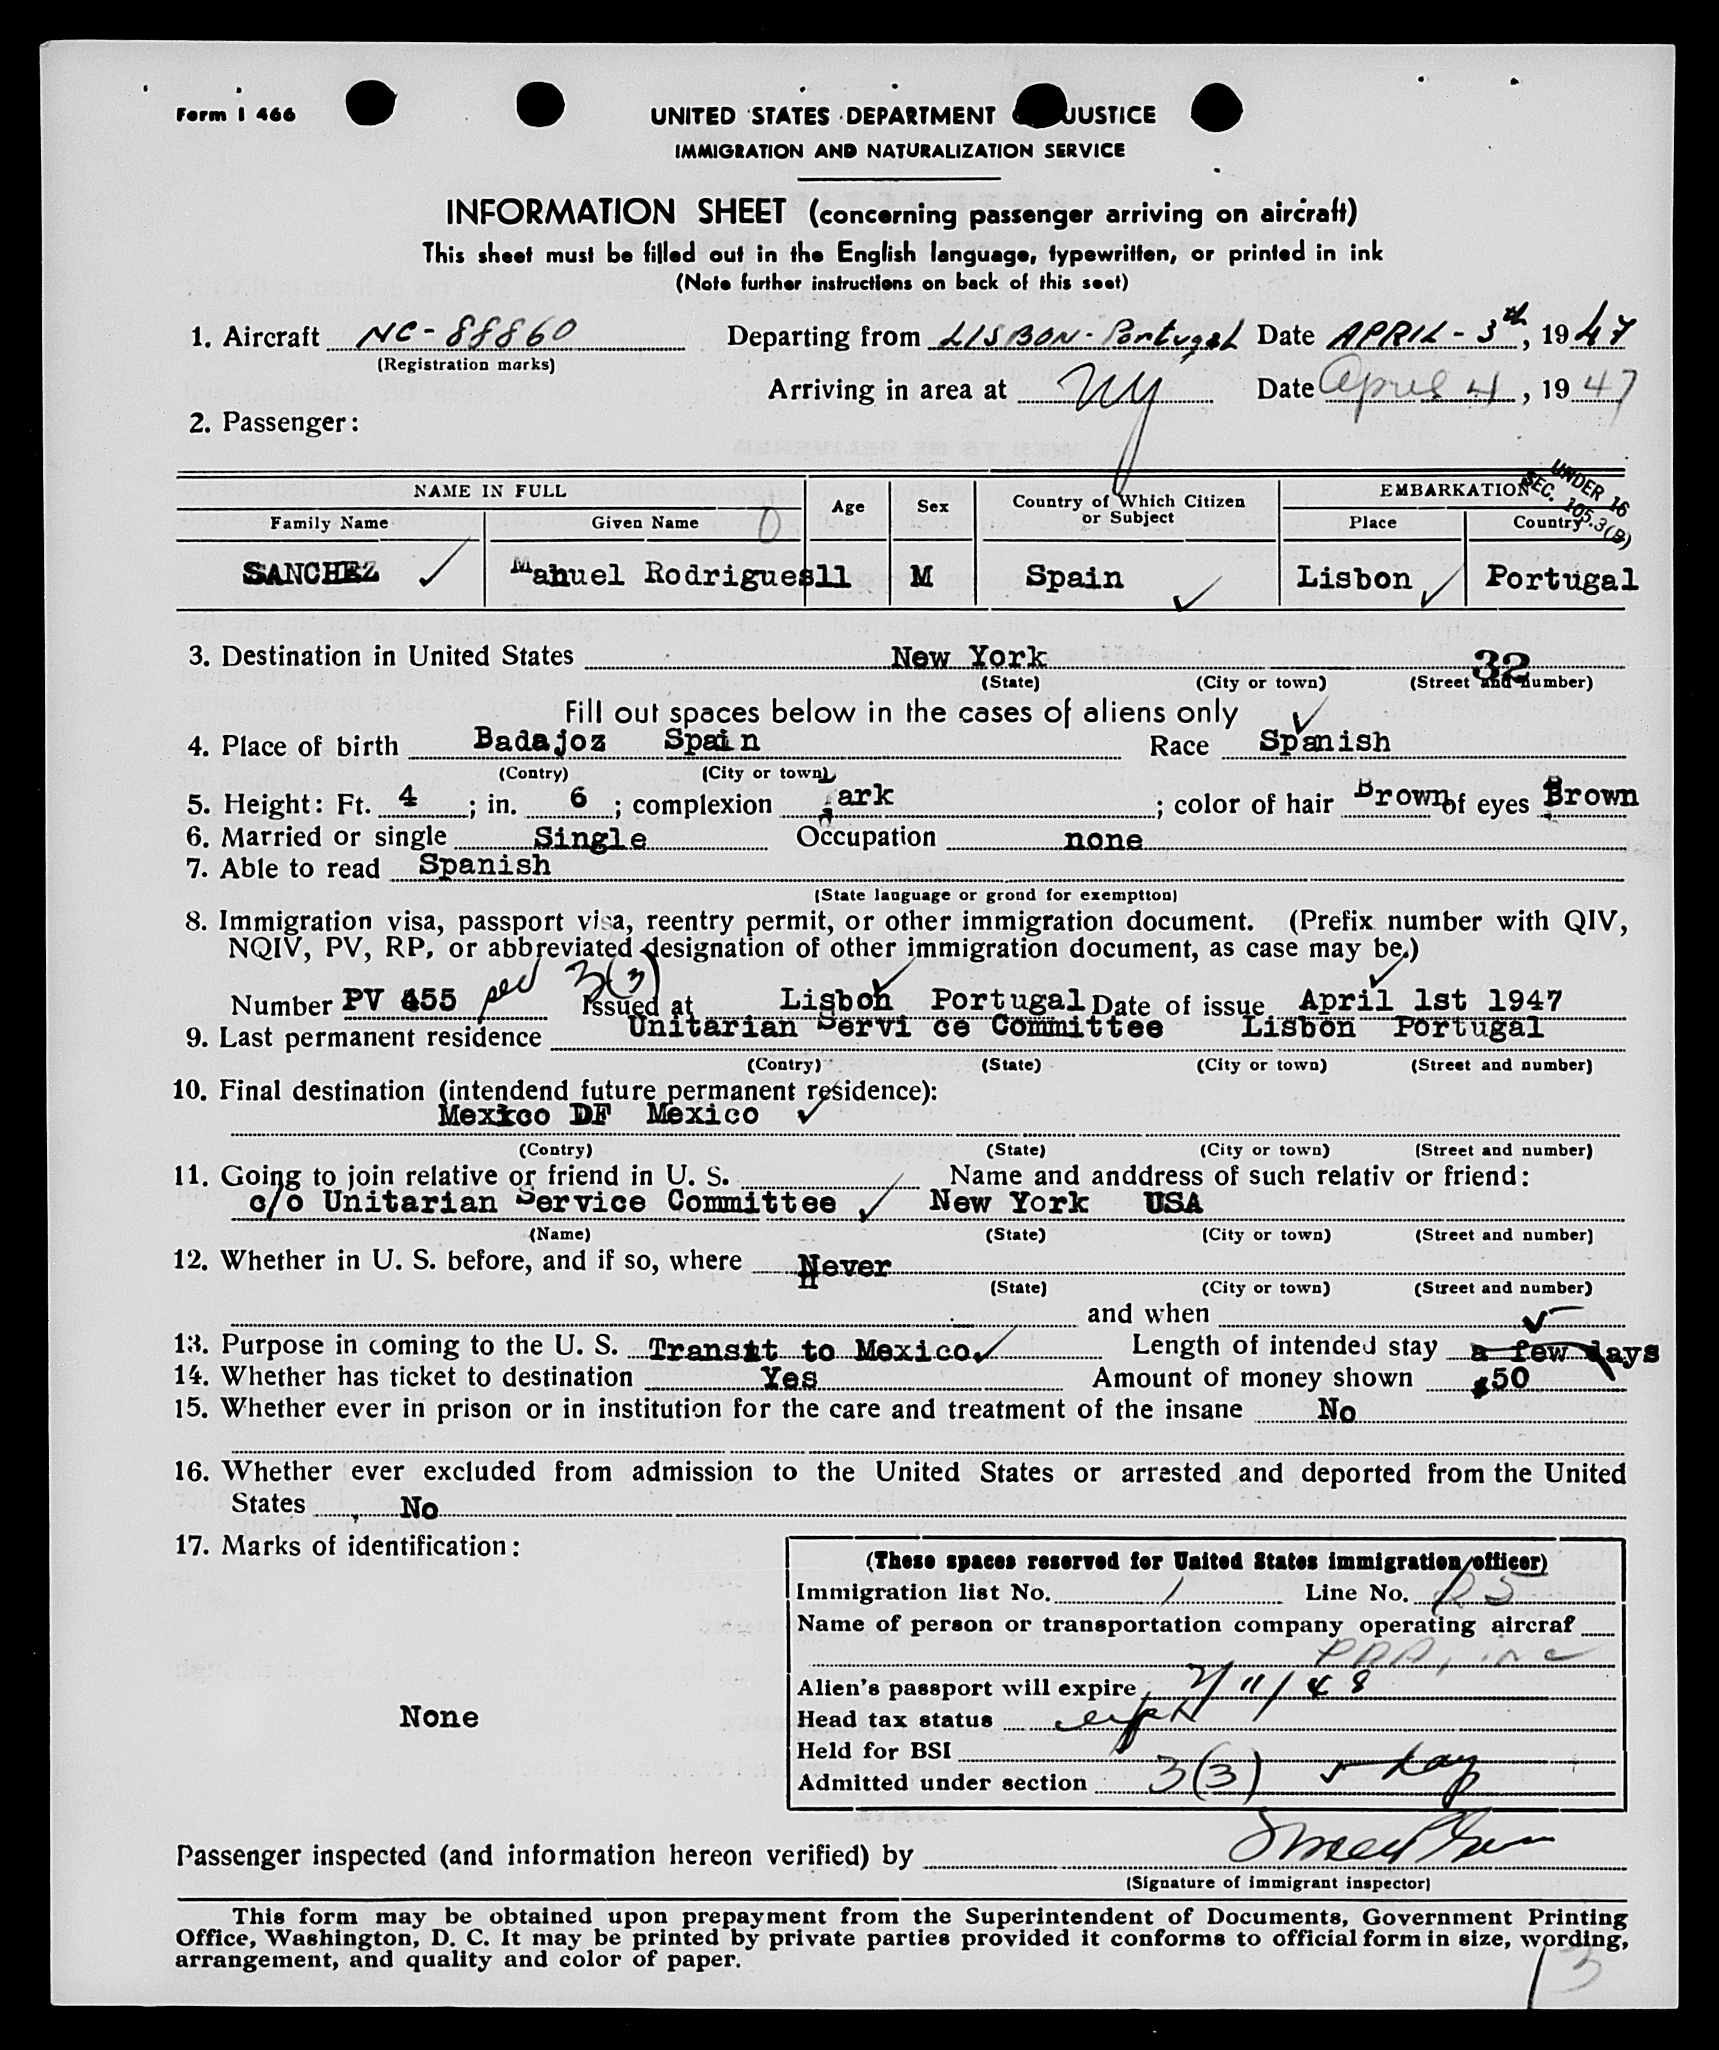 Form I 466
UNITED STATES DEPARTMENT JUSTICE
IMMIGRATION AND NATURALIZATION SERVICE
INFORMATION SHEET (concerning passenger arriving on aircraft)
This sheet must be filled out in the English language, typewritten, or printed in ink
(Note further instructions on back of this seet)
1. Aircraft NC-88860 Departing from LISBON - Portugal Date APRIL - 3th, 1947
(Registration marks)
Arriving in area at NY Date April 4, 1947
2. Passenger:
UNDER 16
SEC. 105.3(B)
NAME IN FULL Age Sex Country of Which Citizen or Subject EMBARKATION
Family Name Given Name 0 Place Country
SANCHEZ Manuel Rodrigues 11 M Spain Lisbon Portugal
3. Destination in United States New York 32
(State) (City or town) (Street and number)
Fill out spaces below in the cases of aliens only
4. Place of birth Badajoz Spain Race Spanish
(Contry) (City or town)
5. Height: Ft. 4; in. 6; complexion ark; color of hair Brown of eyes Brown
6. Married or single Single Occupation none
7. Able to read Spanish
(State language or grond for exemptton)
8. Immigration visa, passport visa, reentry permit, or other immigration document. (Prefix number with QIV,
NQIV, PV, RP, or abbreviated designation of other immigration document, as case may be.)
Number PV 455 3(3) Issued at Lisbon Portugal Date of issue April 1st 1947
9. Last permanent residence Unitarian Servi ce Committee Lisbon Portugal
(Contry) (State) (City or town) (Street and number)
10. Final destination (intendend future permanent residence):
Mexico DF Mexico
(Contry) (State) (City or town) (Street and number)
11. Going to join relative or friend in U. S. Name and anddress of such relativ or friend:
c/o Unitarian Service Committee New York USA
(Name) (State) (City or town) (Street and number)
12. Whether in U. S. before, and if so, where Never
(State) (City or town) (Street and number)
and when
13. Purpose in coming to the U. S. Transit to Mexico Length of intended stay a few days
14. Whether has ticket to destination Yes Amount of money shown $50
15. Whether ever in prison or in institution for the care and treatment of the insane No
16. Whether ever excluded from admission to the United States or arrested and deported from the United
States No
17. Marks of identification:
None
(These spaces reserved for United States immigration officer)
Immigration list No. 1 Line No.
Name of person or transportation company operating aircraf
PAA, inc
Alien's passport will expire 2/11/48
Head tax status
Held for BSI
Admitted under section 3(3)
Passenger inspected (and information hereon verified) by
(Signature of immigrant inspector)
This form may be obtained upon prepayment from the Superintendent of Documents, Government Printing
Office, Washington, D. C. It may be printed by private parties provided it conforms to official form in size, wording,
arrangement, and quality and color of paper.
13